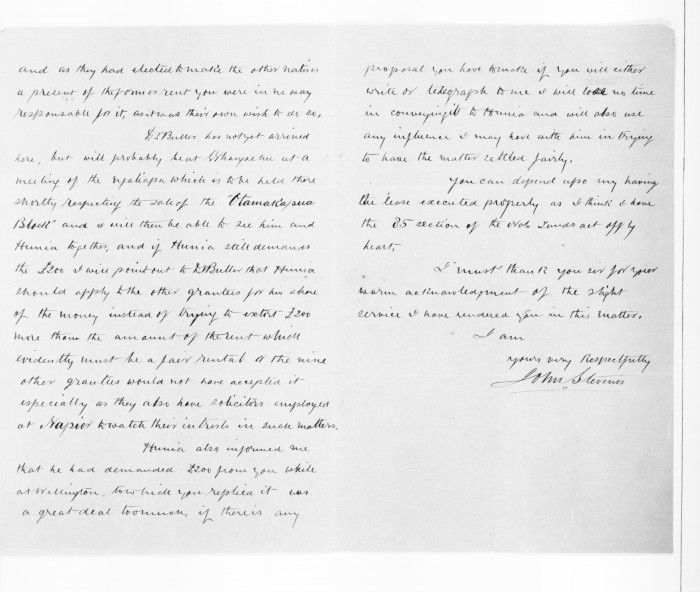 and as they had elected to make the other natives
a present of the former rent you were in no way
responsable for it, as it was their own wish to do so.
Dr Buller has not yet arrived
here, but will probably be at Whangaehu at a
meeting of the ngatiapa which is to be held there
shortly respecting the sale of the "Otamakapua
Block" and I will then be able to see him and
Hunia together, and if Hunia still demands
the £200 I will point out to Dr Buller that Hunia
should apply to the other grantees for his share
of the money instead of trying to extort £200
more than the amount of the rent which
evidently must be a fair rental or the nine
other granties would not have accepted it
especially as they also have solicitors employed
at Napior to watch their intrists in such matters.
Hunia also informed me
that he had demanded £200 from you while
at Wellington, to which you replied it was
a great deal too much, if there is any
proposal you have to make if you will either
write or telegraph to me I will lose no time
in conveying it to Hunia and will also use
any influence I may have with him in trying
to have the matter settled fairly.
You can depend upo my having
the lease executed properly as I think I have
the 85 section of the Native Lands act off by
heart.
I must thank you sir for your
warm acknowledgment of the slight
service I have rendered you in this matter.
I am
yours very Respectfully
John Stevens